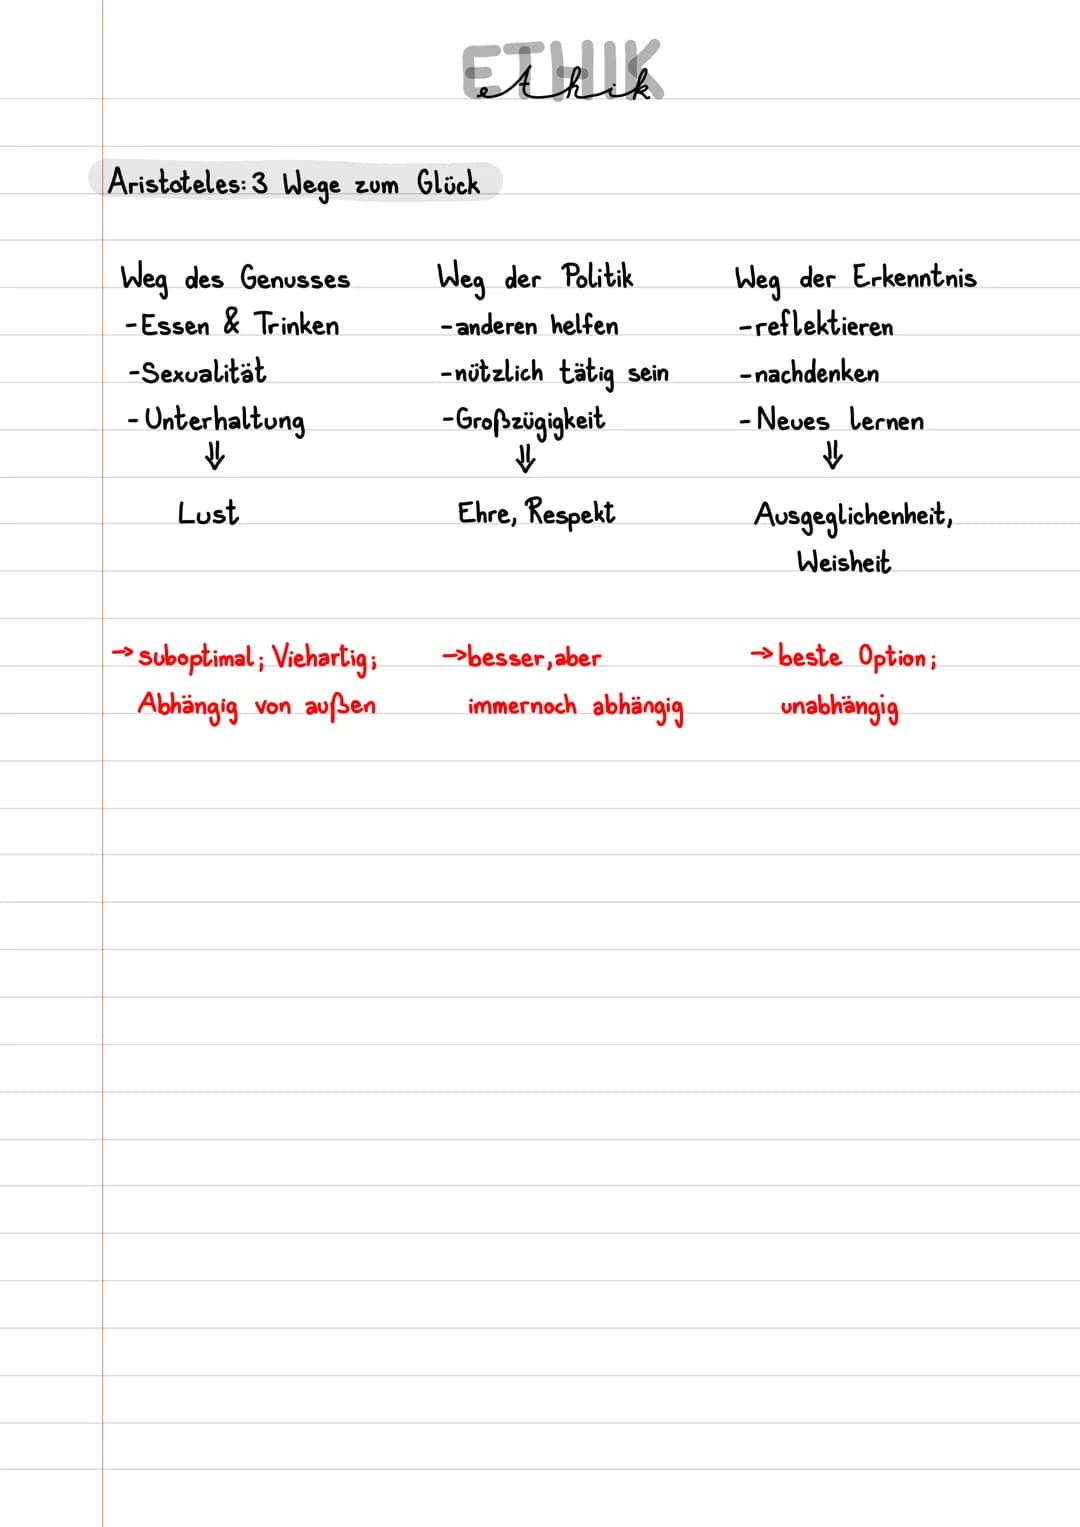 ETHIK
ethik
Aristoteles: 3 Wege zum Glück
Weg des Genusses
-Essen & Trinken
-Sexualität
-Unterhaltung
⇓
Lust
→ suboptimal; Viehartig;
Abhängig von außen
Weg der Politik
-anderen helfen
-nützlich tätig sein
-Großzügigkeit
⇓
Ehre, Respekt
→besser, aber
immernoch abhängig
Weg der Erkenntnis
-reflektieren
-nachdenken
-Neues lernen
⇓
Ausgeglichenheit,
Weisheit
→beste Option;
unabhängig